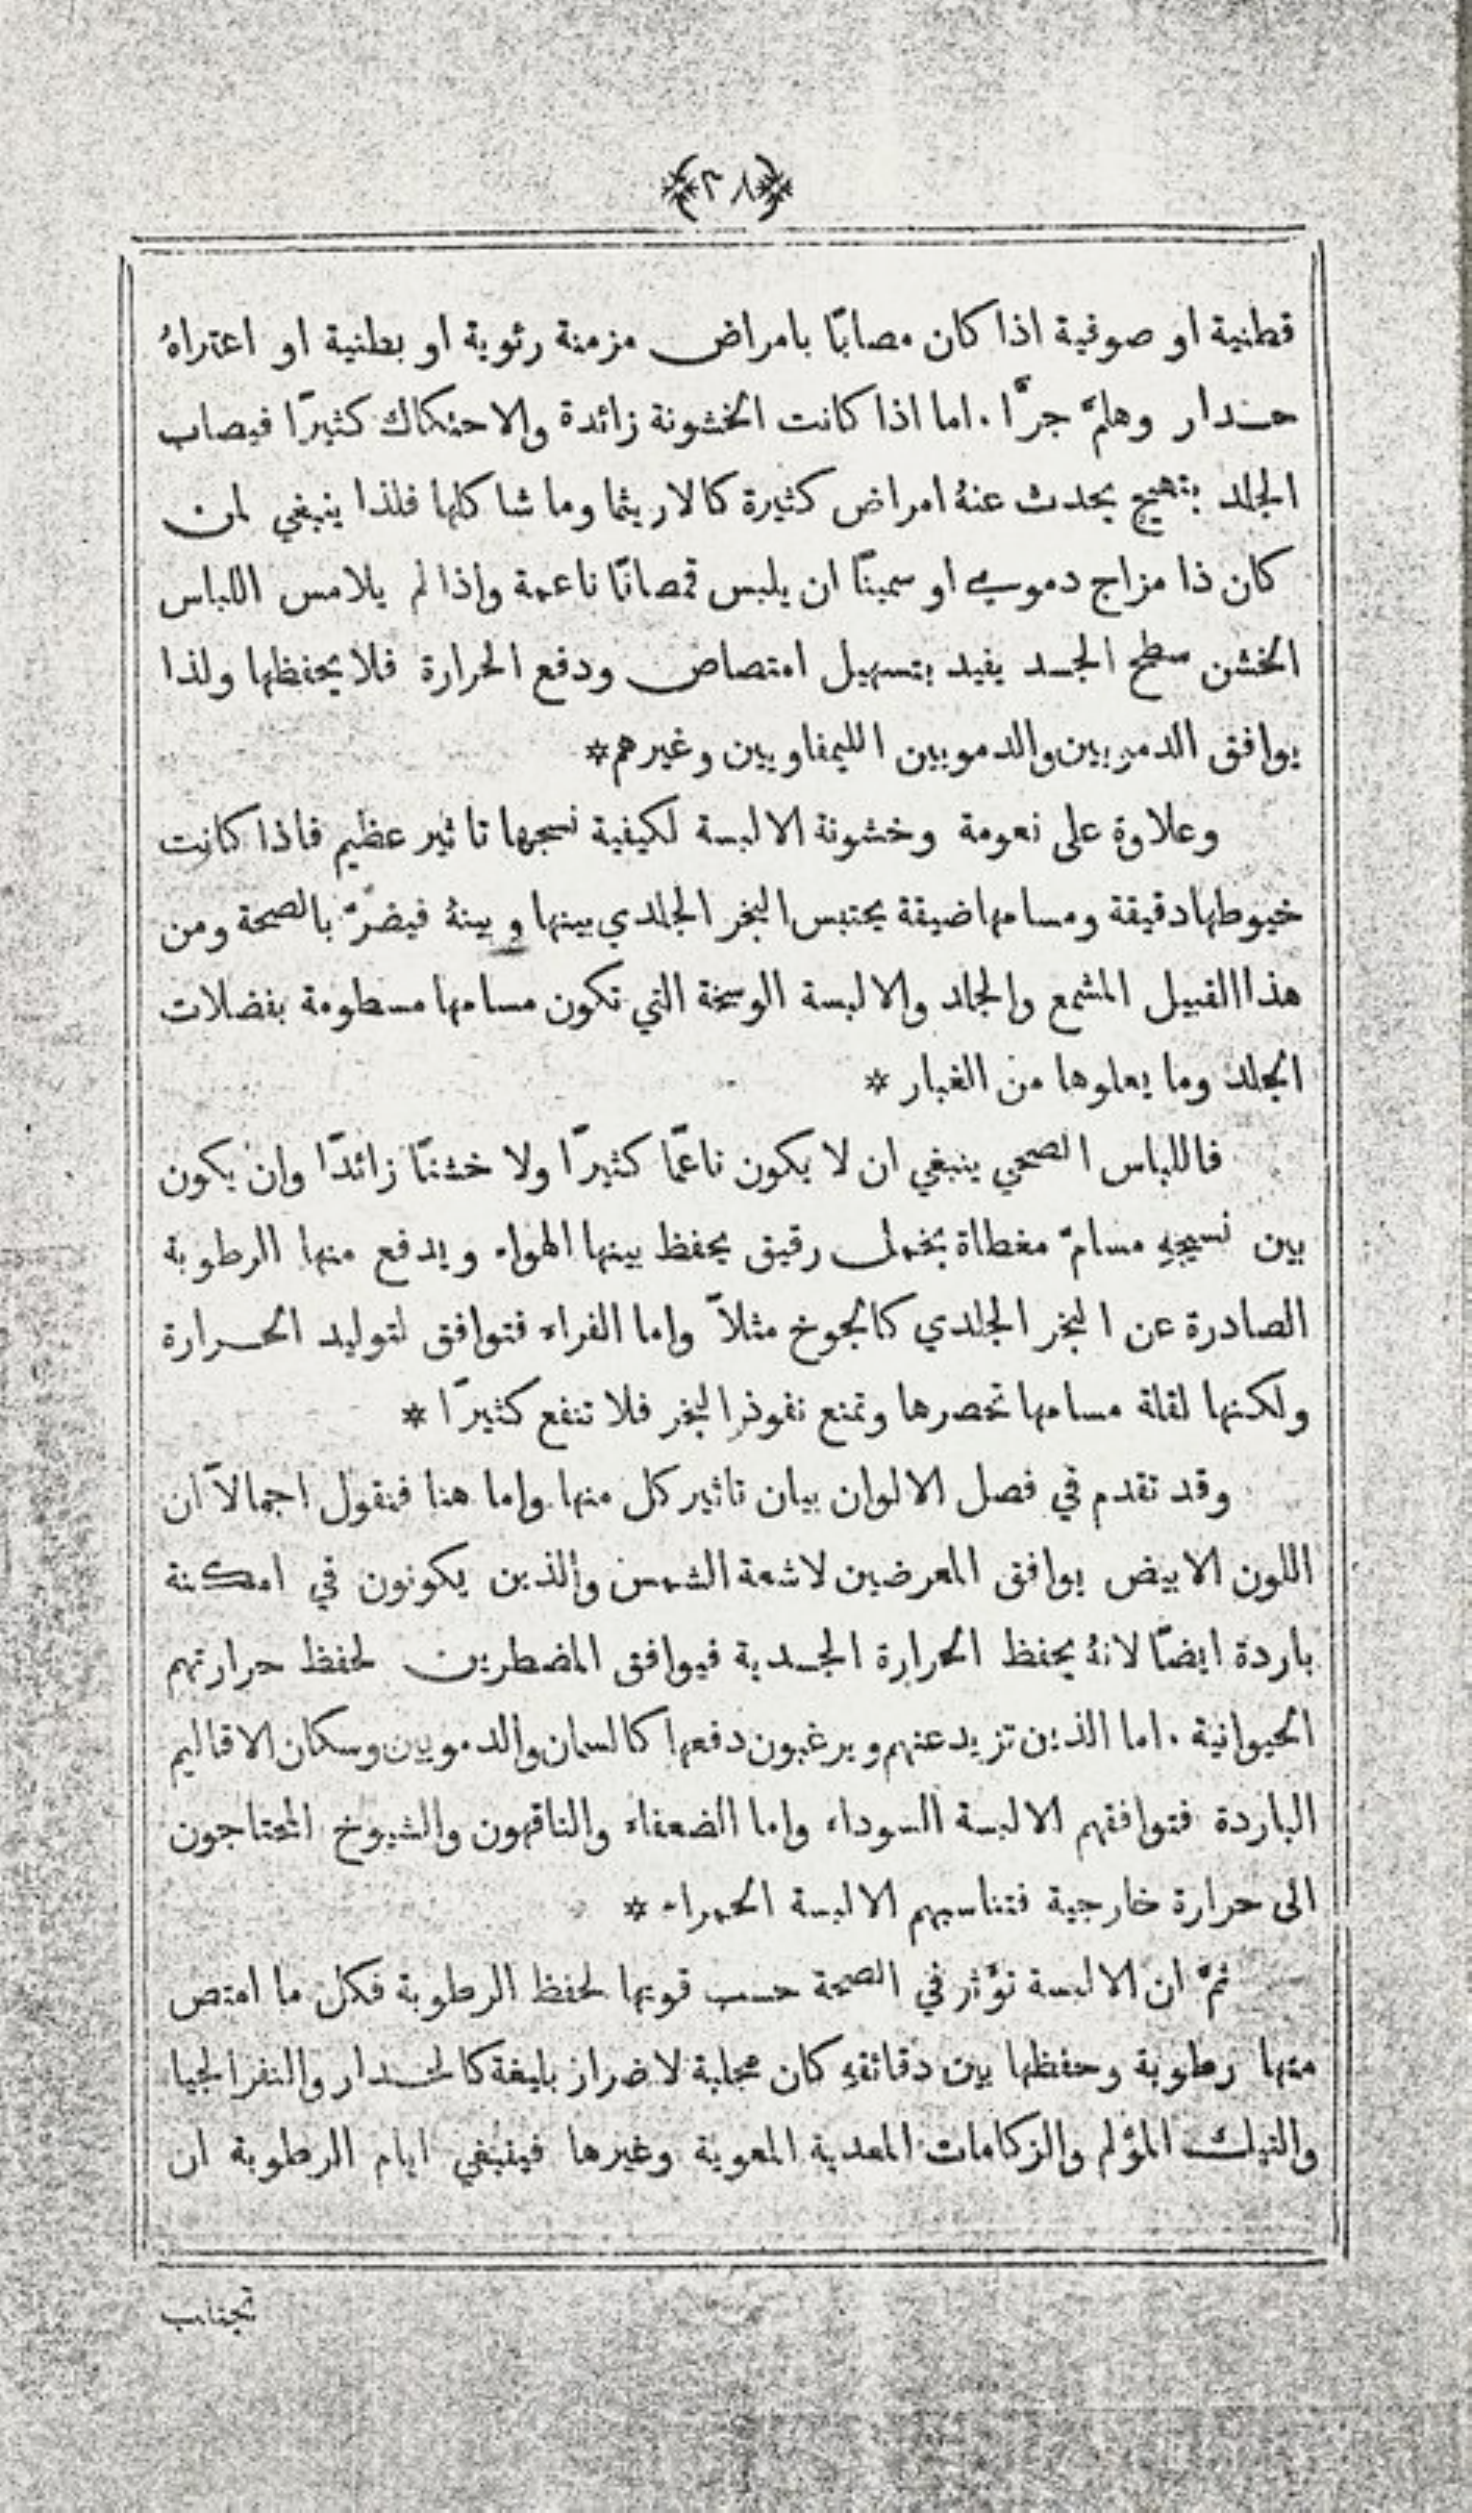 ﴿٢٨﴾
قطنية او صوفية اذا كان مصابًا بامراض مزمنة رئوية او بطنية او اعتراهُ
حدار وهلمَّ جرًّا . اما اذا كانت الخشونة زائدة والاحتكاك كثيرًا فيصاب
الجلد بتهيج يحدث عنهُ امراض كثيرة كالاريثما وما شاكلها فلذا ينبغي لمن
كان ذا مزاج دموي او سمينًا ان يلبس قمصانًا ناعمة واذا لم يلامس اللباس
الخشن سطح الجسد يفيد بتسهيل امتصاص ودفع الحرارة فلا يحفظها ولذا
يوافق الدمويين والدمويين الليمفاويين وغيرهم *
وعلاوة على نعومة وخشونة الالبسة لكيفية نسجها تاثير عظيم فاذا كانت
خيوطها دقيقة ومسامها ضيقة يحتبس البخر الجلدي بينها وبينهُ فيضرّ بالصحة ومن
هذا القبيل المشمع والجلد والالبسة الوسخة التي تكون مسامها مسطومة بفضلات
الجلد وما يعلوها من الغبار *
فاللباس الصحي ينبغي ان لا يكون ناعمًا كثيرًا ولا خشنًا زائدًا وان يكون
بين نسيجهِ مسامّ مغطاة بخمل رقيق يحفظ بينها الهواء ويدفع منها الرطوبة
الصادرة عن البخر الجلدي كالجوخ مثلاً واما الفراء فتوافق لتوليد الحرارة
ولكنها لقلة مسامها تحصرها وتمنع نفوذ البخر فلا تنفع كثيرًا *
وقد تقدم في فصل الالوان بيان تاثير كل منها واما هنا فنقول اجمالاً ان
اللون الابيض يوافق المعرضين لاشعة الشمس والذين يكونون في امكنة
باردة ايضًا لانهُ يحفظ الحرارة الجسدية فيوافق المضطرين لحفظ حرارتهم
الحيوانية . اما الذين تزيد عنهم ويرغبون دفعها كالسمان والدمويين وسكان الاقاليم
الباردة فتوافقهم الالبسة السوداء واما الضعفاء والناقهون والشيوخ المحتاجون
الى حرارة خارجية فتناسبهم الالبسة الحمراء *
ثمَّ ان الالبسة تؤثر في الصحة حسب قوتها لحفظ الرطوبة فكل ما امتص
منها رطوبة وحفظها بين دقائقهِ كان مجلبة لاضرار بليغة كالحدار والنفرالجيا
والتيك المؤلم والزكامات المعدية المعوية وغيرها فينبغي ايام الرطوبة ان
تجتنب